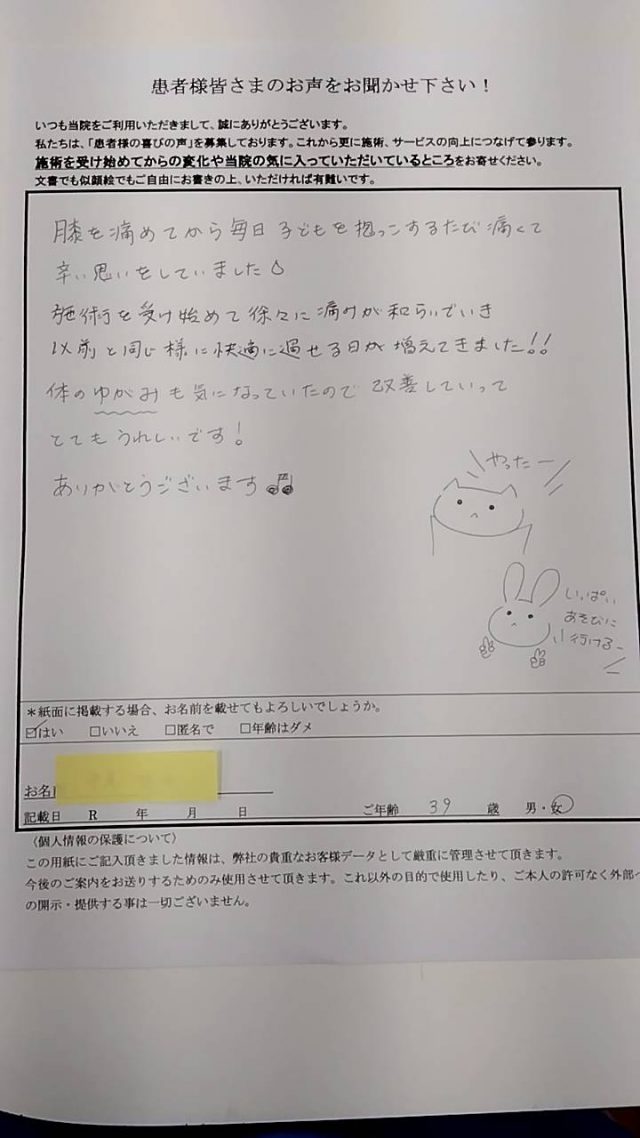 患者様皆さまのお声をお聞かせ下さい！
いつも当院をご利用いただきまして、誠にありがとうございます。
私たちは、「患者様の喜びの声」を募集しております。これから更に施術、サービスの向上につなげて参ります。
施術を受け始めてからの変化や当院の気に入っていただいているところをお寄せください。
文書でも似顔絵でもご自由にお書きの上、いただければ有難いです。
膝を痛めてから毎日子どもを抱っこするたび痛くて
辛い思いをしていました
施術を受け始めて徐々に痛みが和らいでいき
以前と同じ様に快適に過せる日が増えてきました!!
体のゆがみも気になっていたので改善していって
とてもうれしいです！
ありがとうございます♫
やったー
いっぱい
あそびに
行けるー
＊紙面に掲載する場合、お名前を載せてもよろしいでしょうか。
☑はい　□いいえ　□匿名で　□年齢はダメ
お名
記載日　R　年　月　日　ご年齢　39　歳　男・女
（個人情報の保護について）
この用紙にご記入頂きました情報は、弊社の貴重なお客様データとして厳重に管理させて頂きます。
今後のご案内をお送りするためのみ使用させて頂きます。これ以外の目的で使用したり、ご本人の許可なく外部へ
の開示・提供する事は一切ございません。